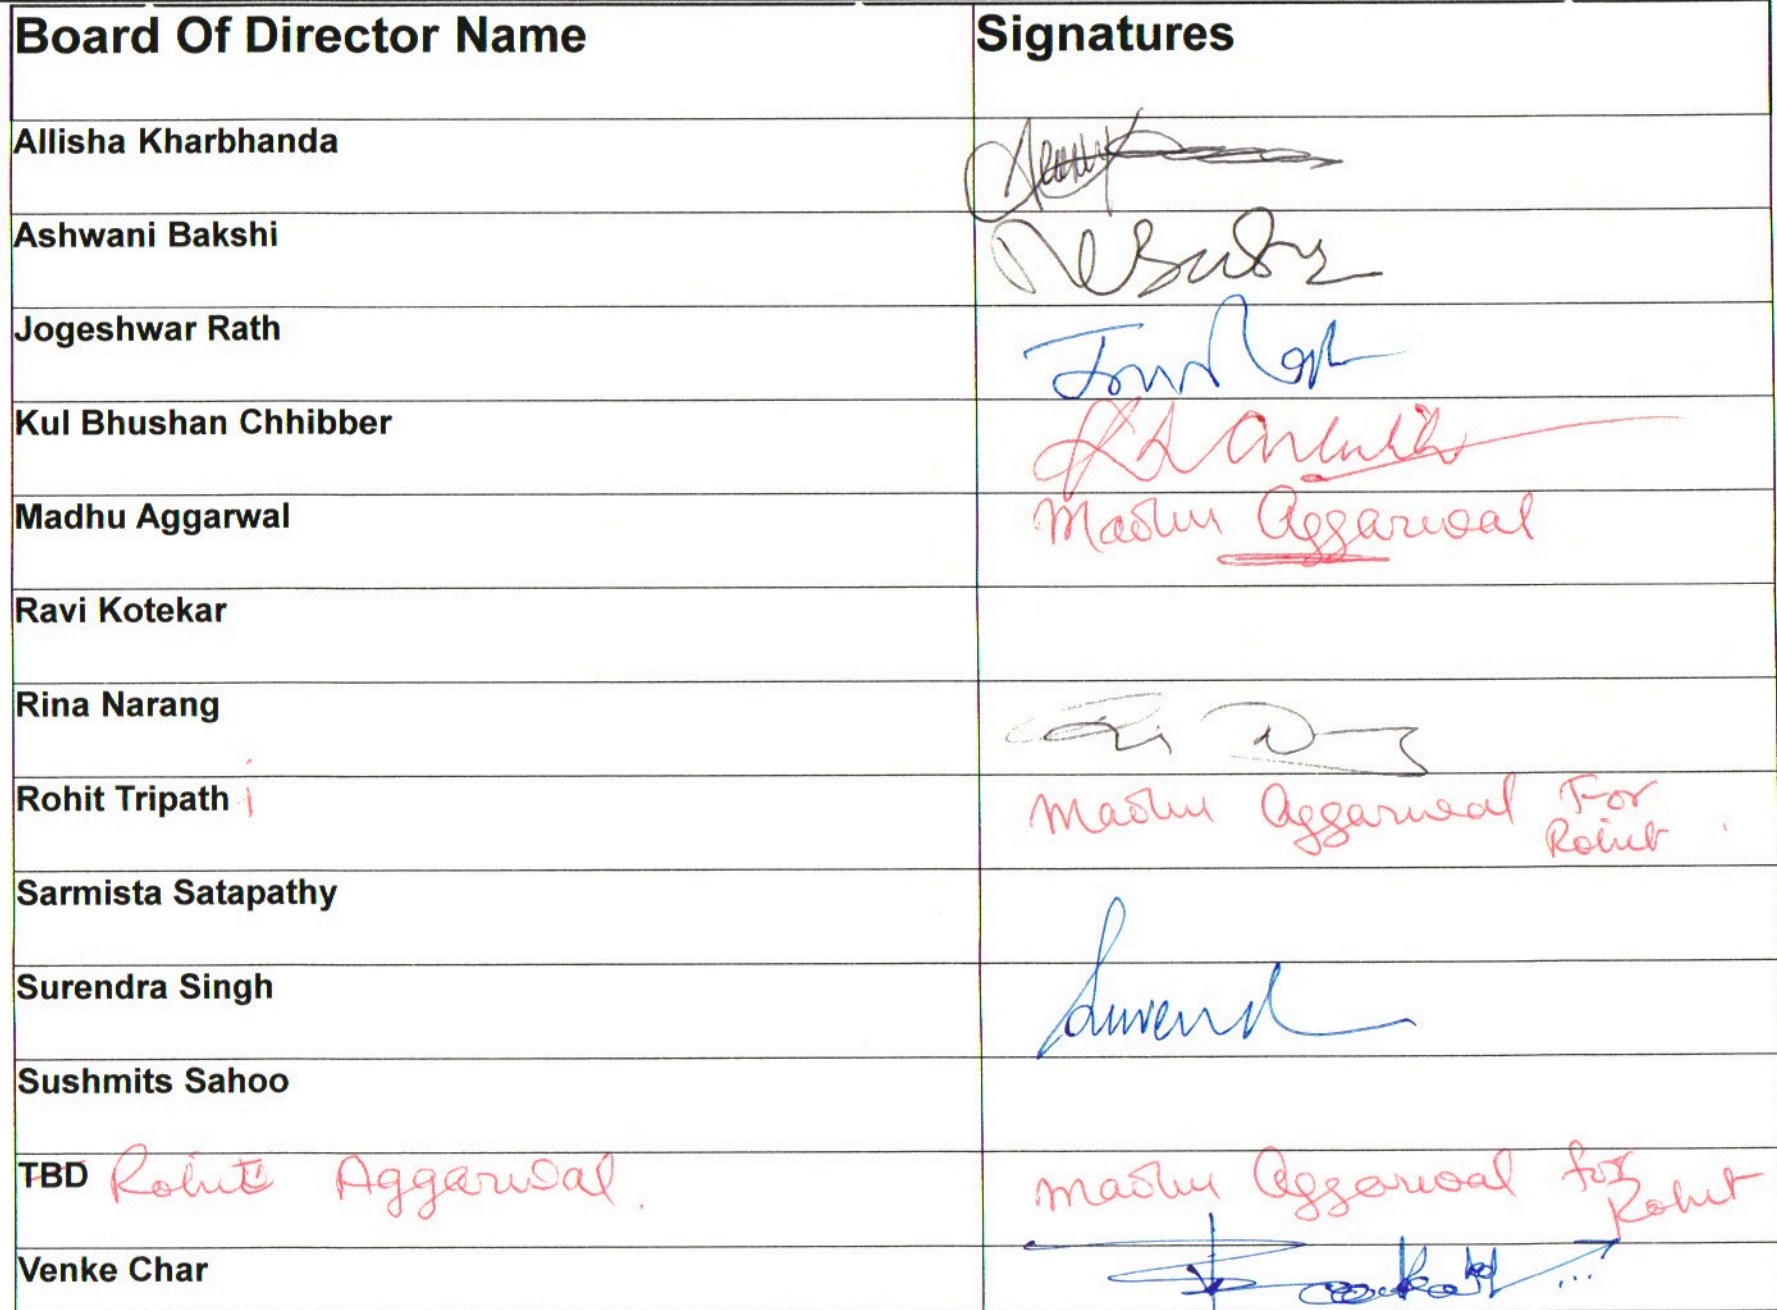 Board Of Director Name Signatures
Allisha Kharbhanda
Ashwani Bakshi
Jogeshwar Rath
Kul Bhushan Chhibber
Madhu Aggarwal Madhu Aggarwal
Ravi Kotekar
Rina Narang
Rohit Tripath i Madhu Aggarwal For
Rohit
Sarmista Satapathy
Surendra Singh Surend
Sushmits Sahoo
TBD Rohit Aggarwal. Madhu Aggarwal for
Rohit
Venke Char